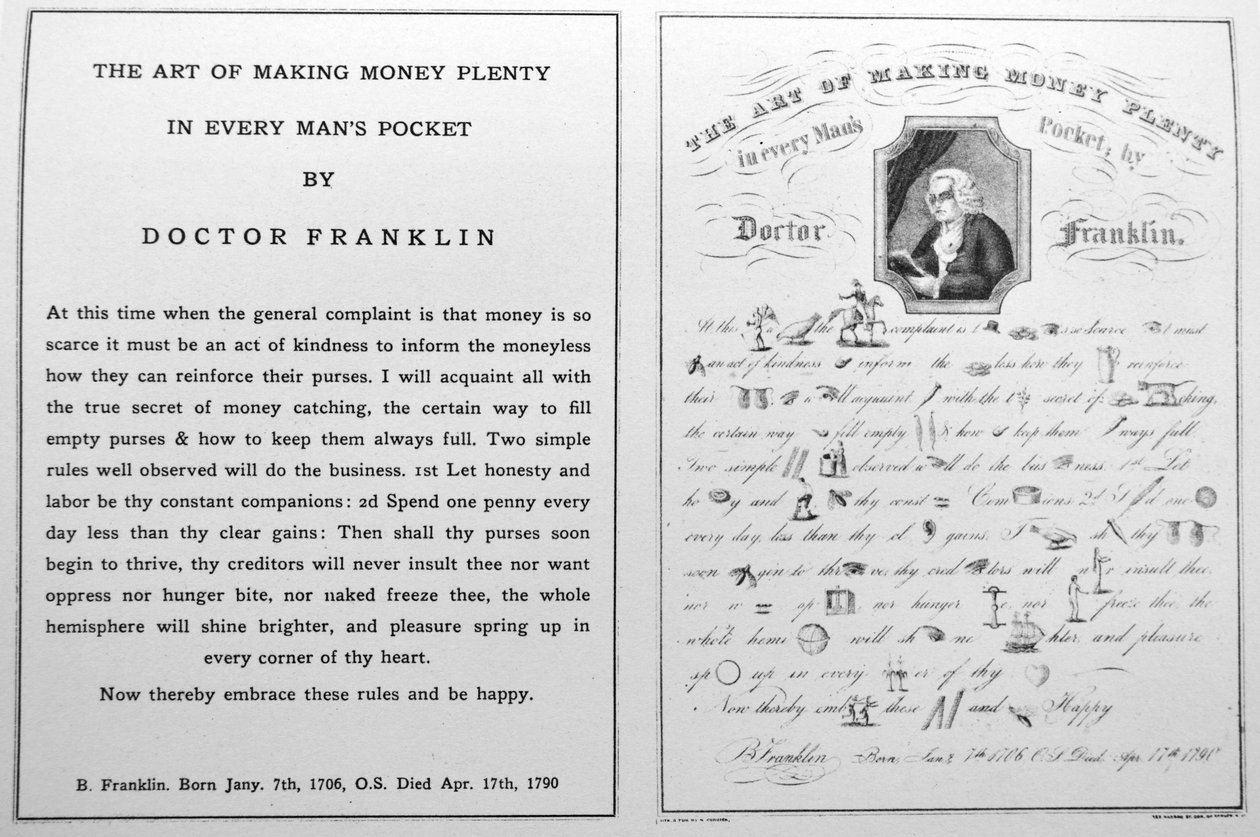 THE ART OF MAKING MONEY PLENTY
IN EVERY MAN'S POCKET
BY
DOCTOR FRANKLIN
At this time when the general complaint is that money is so
scarce it must be an act of kindness to inform the moneyless
how they can reinforce their purses. I will acquaint all with
the true secret of money catching, the certain way to fill
empty purses & how to keep them always full. Two simple
rules well observed will do the business. 1st Let honesty and
labor be thy constant companions: 2d Spend one penny every
day less than thy clear gains: Then shall thy purses soon
begin to thrive, thy creditors will never insult thee nor want
oppress nor hunger bite, nor naked freeze thee, the whole
hemisphere will shine brighter, and pleasure spring up in
every corner of thy heart.
Now thereby embrace these rules and be happy.
B. Franklin. Born Jany. 7th, 1706, O.S. Died Apr. 17th, 1790
THE ART OF MAKING MONEY PLENTY
in every Man's Pocket; by
Doctor Franklin.
At this the complaint is t so scarce t must
an act of kindness inform the less how they reinforce
their w ll acquaint with the t secret of ching,
the certain way fill empty & how keep them ways full
Two simple observed w ll do the bus ness. 1st Let
ho y and thy const Com ions 2d S d one
every day, less than thy cl gains. T sh thy
soon gin to thr ve, thy cred tors will n r insult thee,
nor w op nor hunger e, nor freeze thee, the
whole hemi will sh ne hter, and pleasure
sp up in every er of thy
Now thereby emb these and Happy
B Franklin Born, Jany 7th 1706 O.S Died Apr. 17th 1790
LITH. & PUB. BY N. CURRIER,